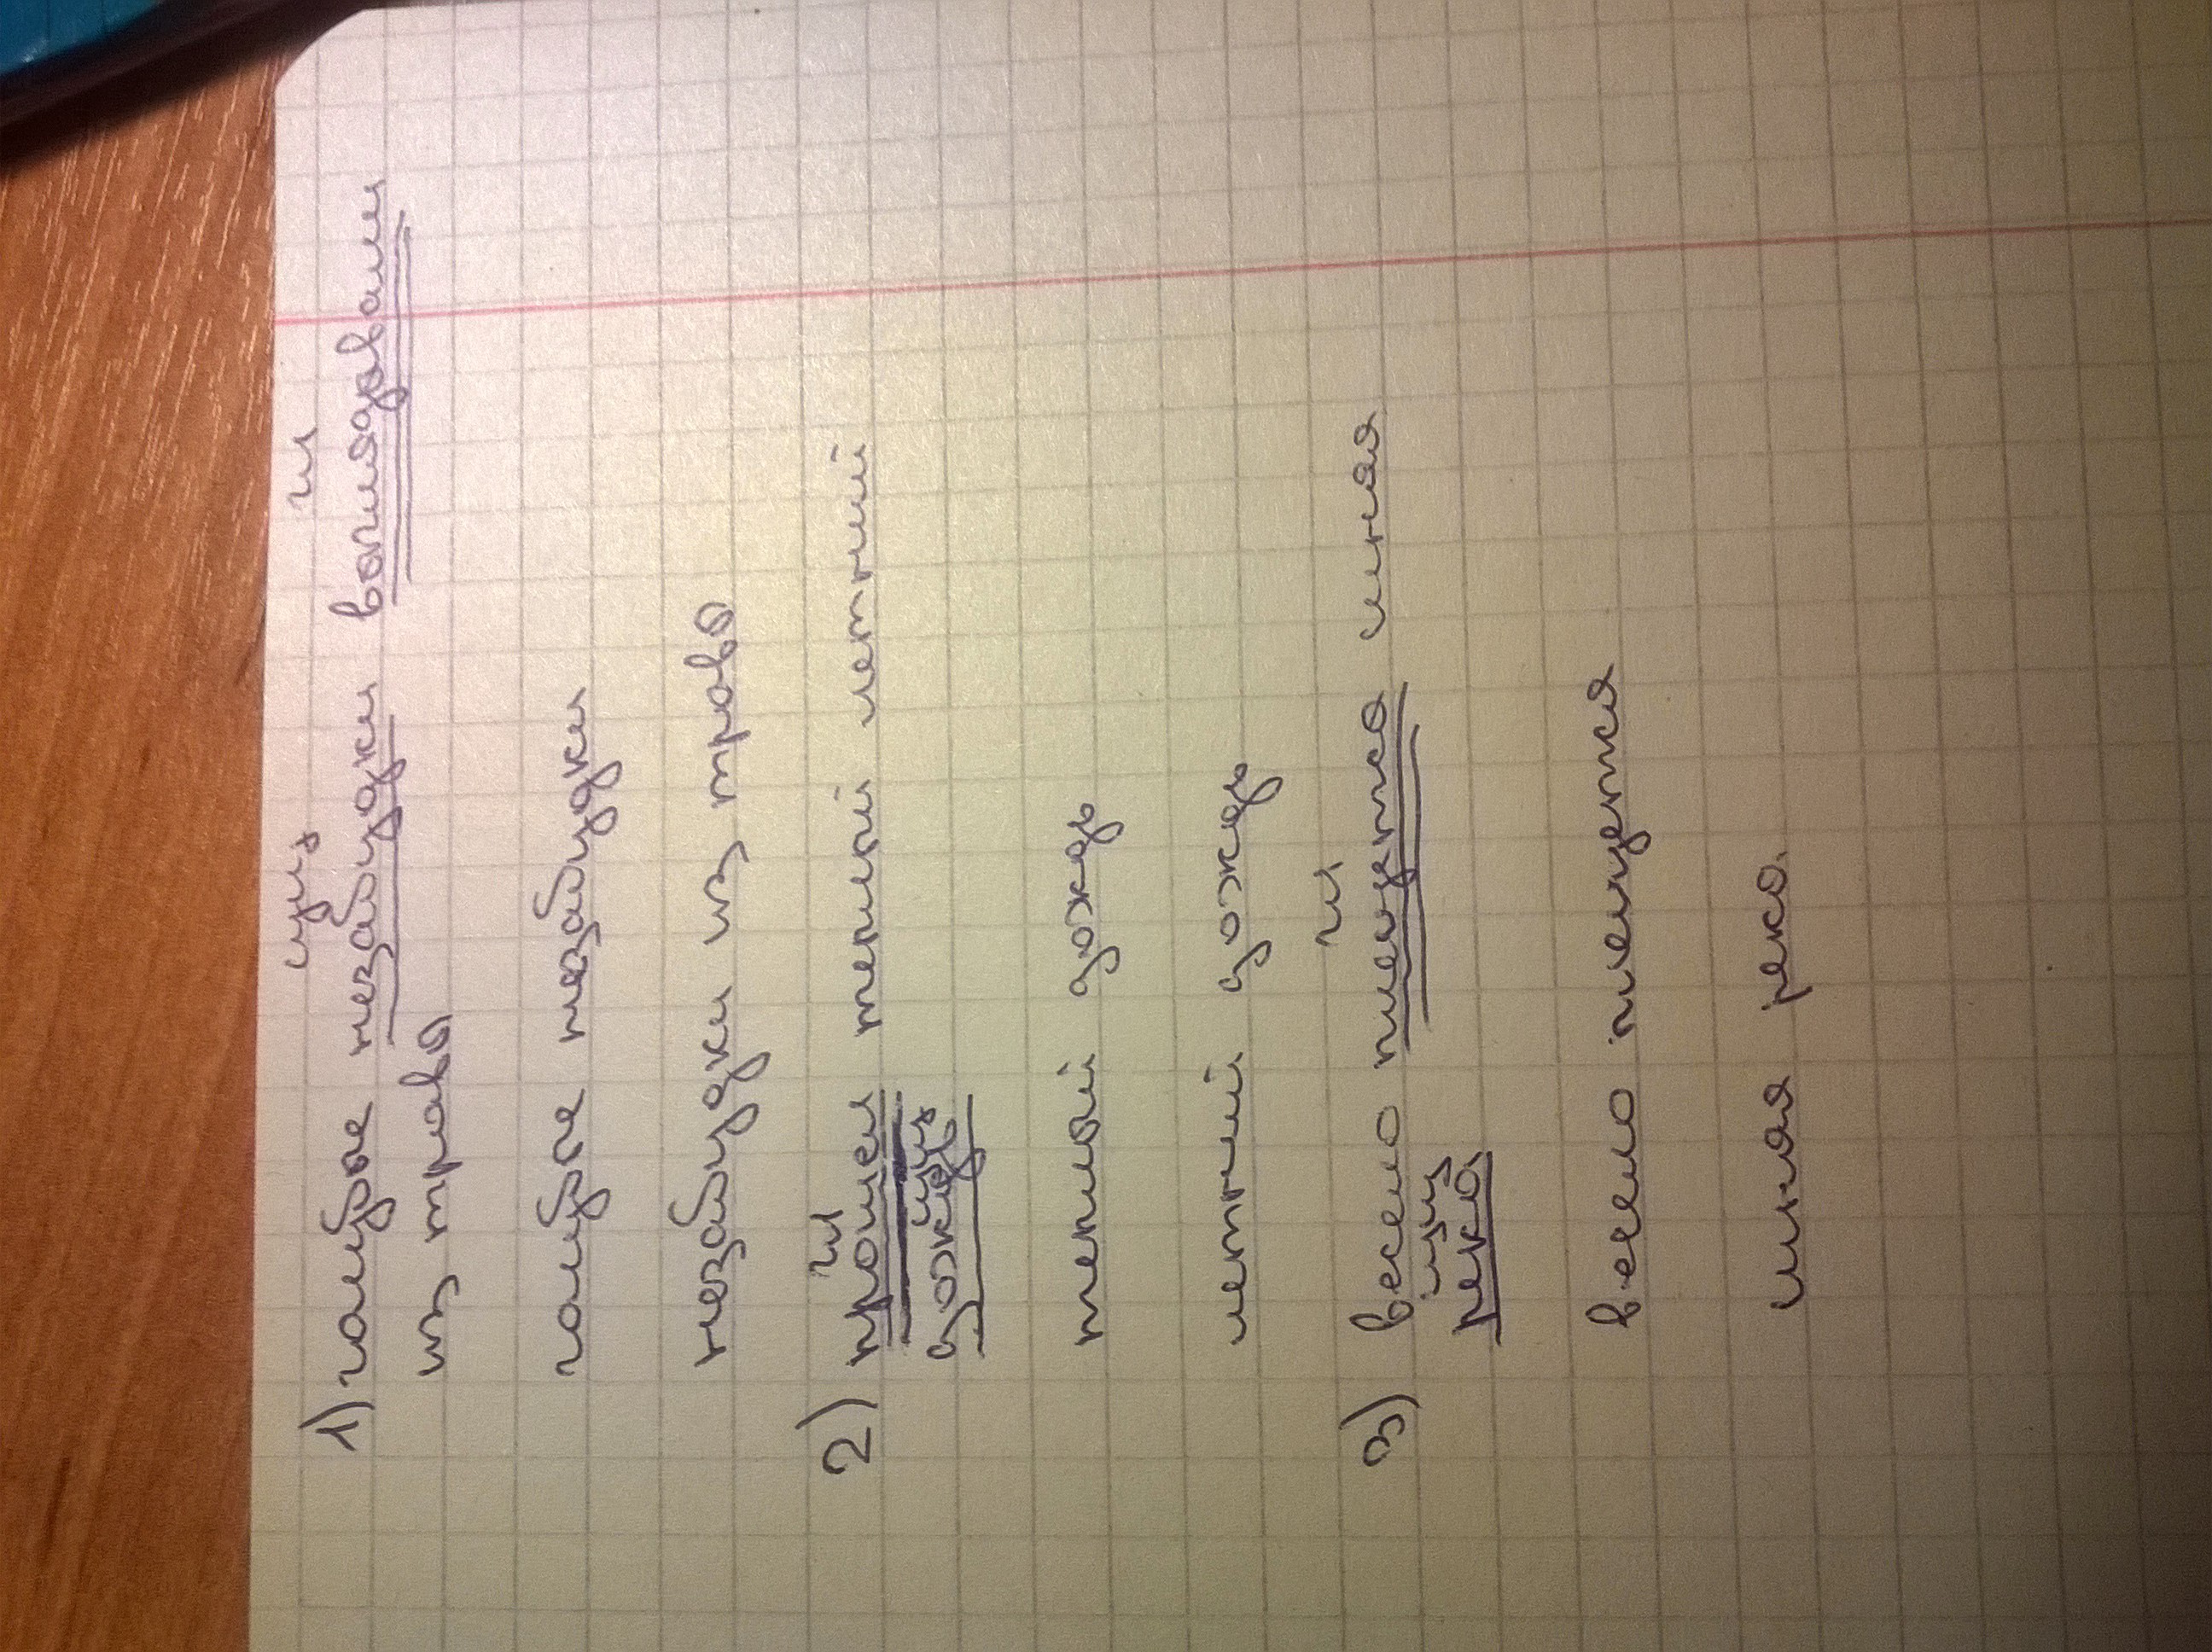 сущ гл
1) голубые незабудки выглядывали
из травы
голубые незабудки
незабудки из травы
гл
2) прошел теплый летний
сущ
дождь
теплый дождь
летний дождь
гл
3) весело плещется синяя
сущ
река
весело плещется
синяя река.